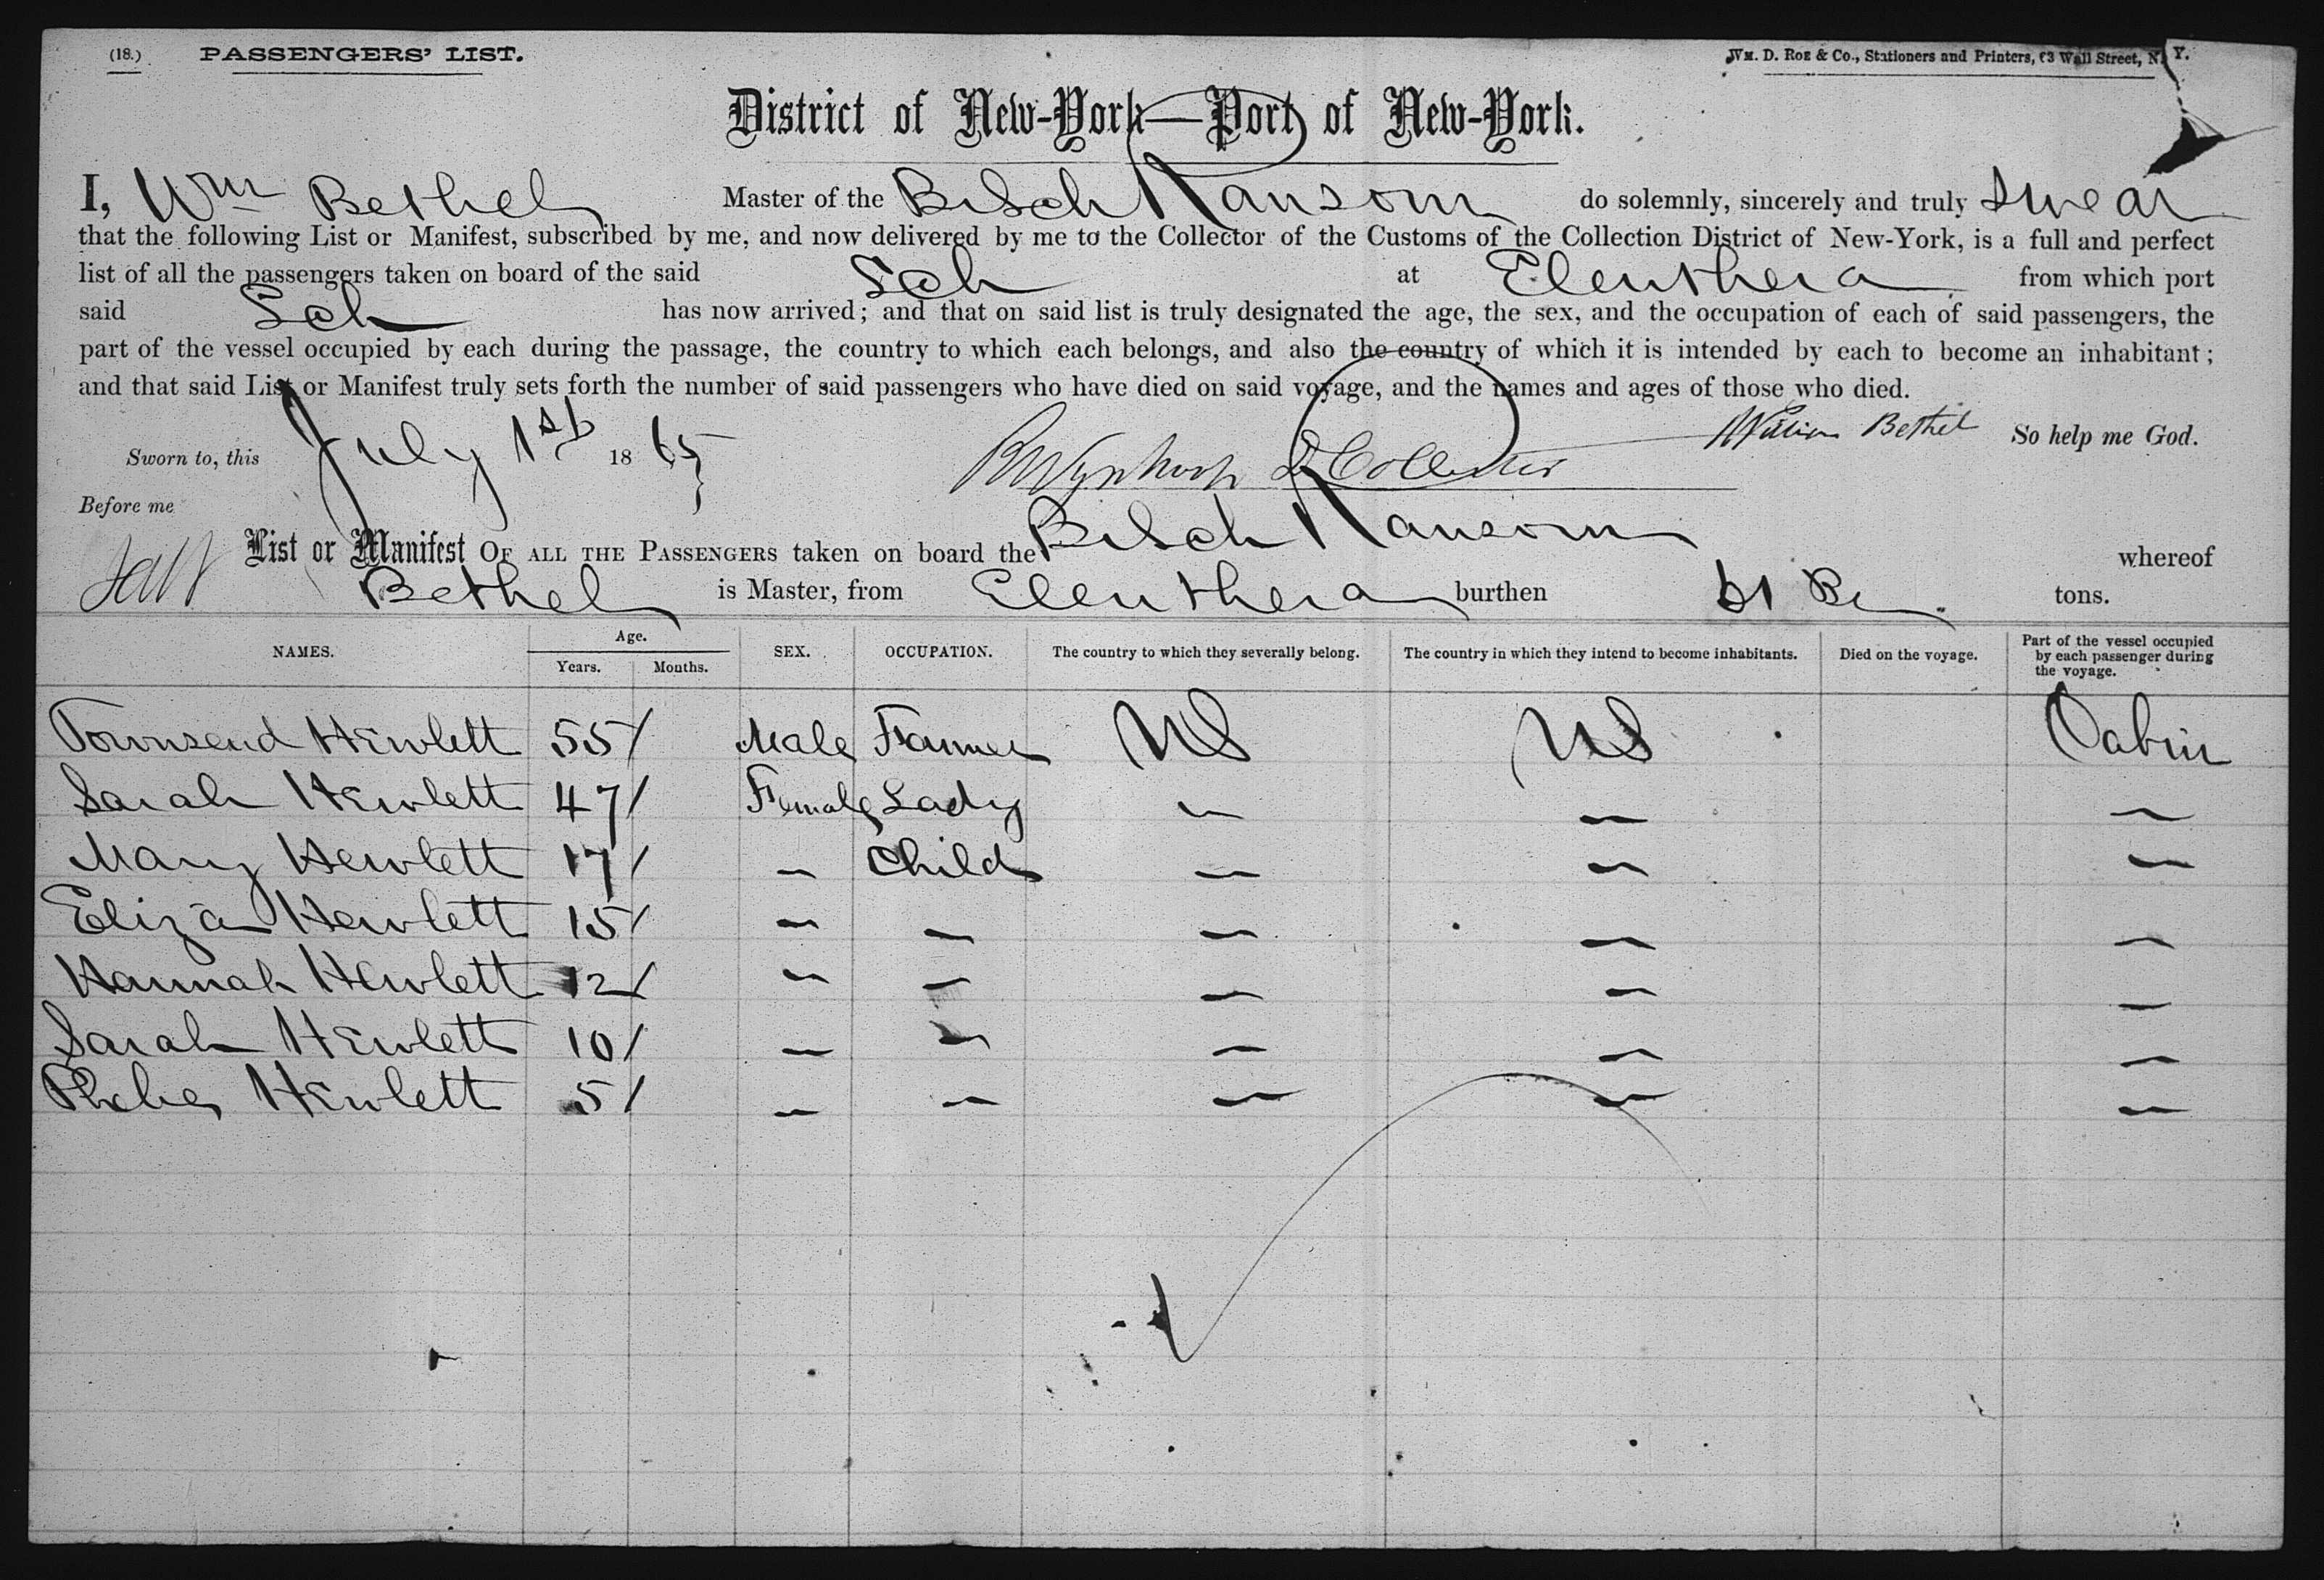 (18.) PASSENGERS' LIST.
WM. D. ROE & Co., Stationers and Printers, 63 Wall Street, N. Y.
District of New-York—Port of New-York.
I, Wm Bethel Master of the Br Sch Ransom do solemnly, sincerely and truly swear
that the following List or Manifest, subscribed by me, and now delivered by me to the Collector of the Customs of the Collection District of New-York, is a full and perfect
list of all the passengers taken on board of the said Sch at Eleuthera from which port
said Sch has now arrived; and that on said list is truly designated the age, the sex, and the occupation of each of said passengers, the
part of the vessel occupied by each during the passage, the country to which each belongs, and also the country of which it is intended by each to become an inhabitant;
and that said List or Manifest truly sets forth the number of said passengers who have died on said voyage, and the names and ages of those who died.
William Bethel So help me God.
Sworn to, this July 1st 1865
Before me D Collector
List or Manifest OF ALL THE PASSENGERS taken on board the Br Sch Ransom whereof
Bethel is Master, from Eleuthera burthen 61 tons.
NAMES. Age. Years. Months. SEX. OCCUPATION. The country to which they severally belong. The country in which they intend to become inhabitants. Died on the voyage. Part of the vessel occupied by each passenger during the voyage.
Townsend Hewlett 55 / Male Farmer US US Cabin
Sarah Hewlett 47 / Female Lady — — —
Mary Hewlett 17 / — Child — — —
Eliza Hewlett 15 / — — — — —
Hannah Hewlett 12 / — — — — —
Sarah Hewlett 10 / — — — — —
Phebe Hewlett 5 / — — — — —